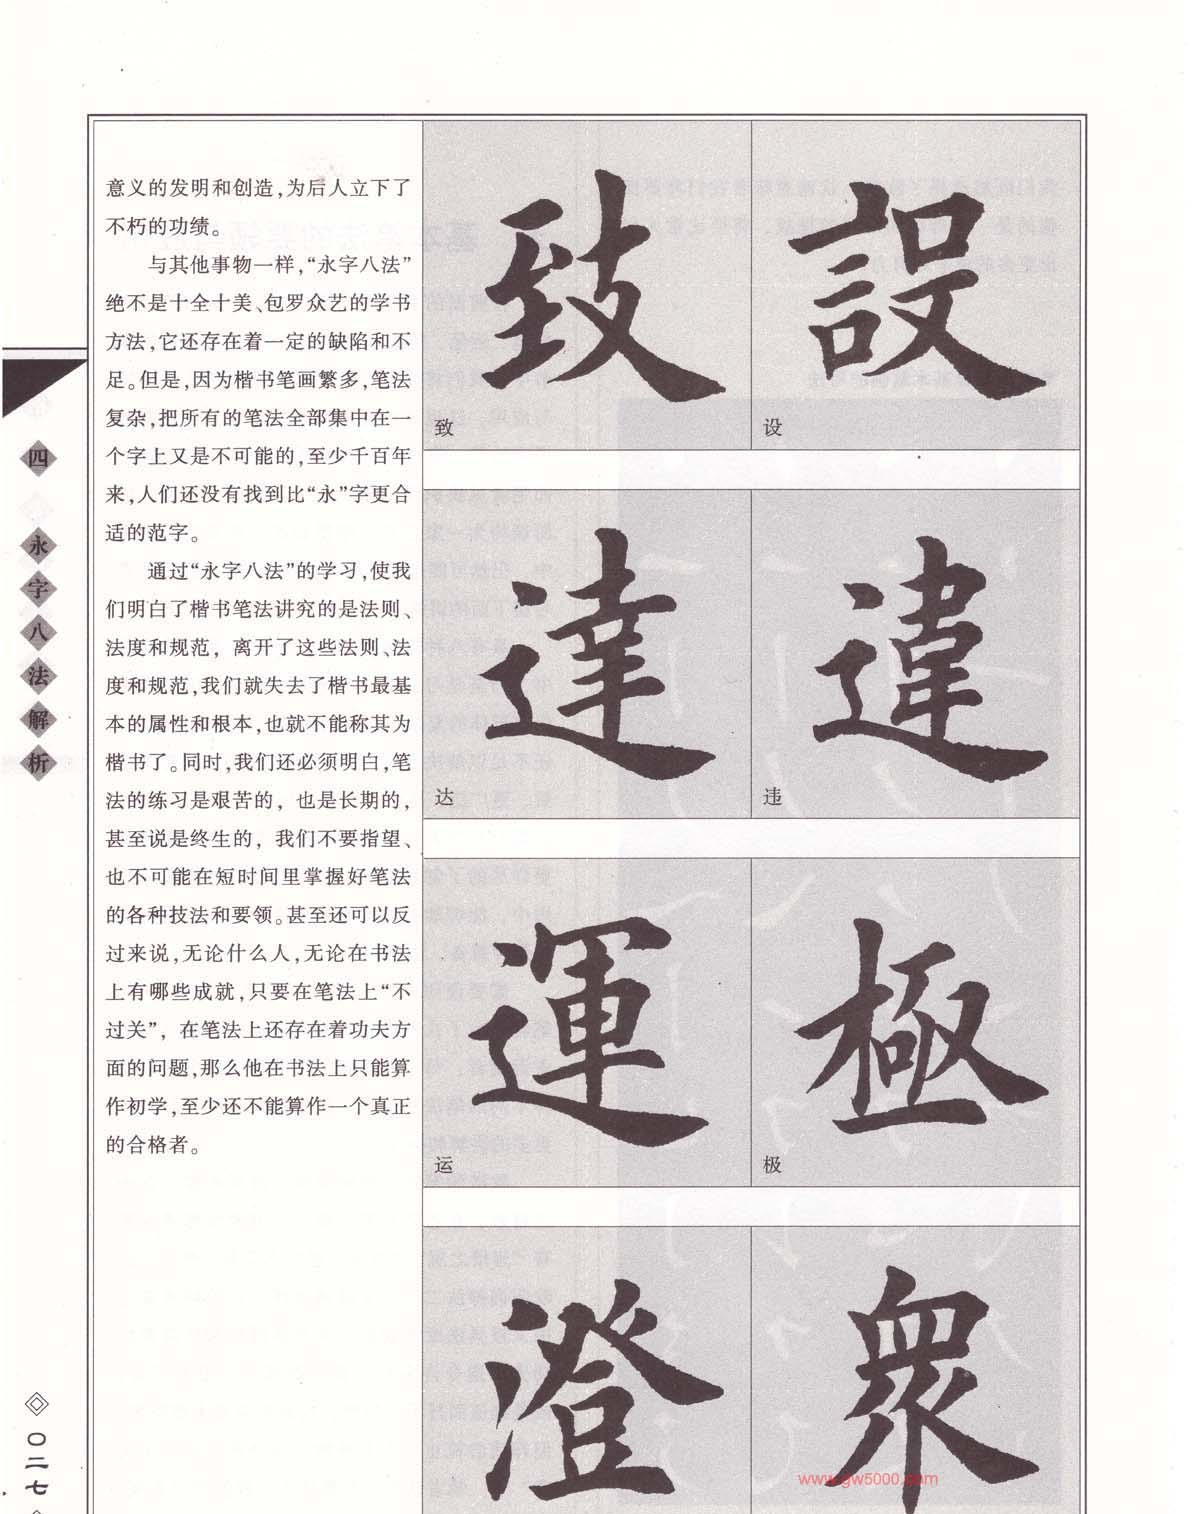 意义的发明和创造,为后人立下了
不朽的功绩。
与其他事物一样,“永字八法”
绝不是十全十美、包罗众艺的学书
方法,它还存在着一定的缺陷和不
足。但是,因为楷书笔画繁多,笔法
复杂,把所有的笔法全部集中在一
个字上又是不可能的,至少千百年
来,人们还没有找到比“永”字更合
适的范字。
通过“永字八法”的学习,使我
们明白了楷书笔法讲究的是法则、
法度和规范，离开了这些法则、法
度和规范,我们就失去了楷书最基
本的属性和根本,也就不能称其为
楷书了。同时,我们还必须明白,笔
法的练习是艰苦的，也是长期的，
甚至说是终生的，我们不要指望、
也不可能在短时间里掌握好笔法
的各种技法和要领。甚至还可以反
过来说,无论什么人,无论在书法
上有哪些成就,只要在笔法上“不
过关”，在笔法上还存在着功夫方
面的问题,那么他在书法上只能算
作初学,至少还不能算作一个真正
的合格者。
致
致
設
设
達
达
違
违
運
运
極
极
澄
衆
四 永字八法解析
〇二七
www.gw5000.com